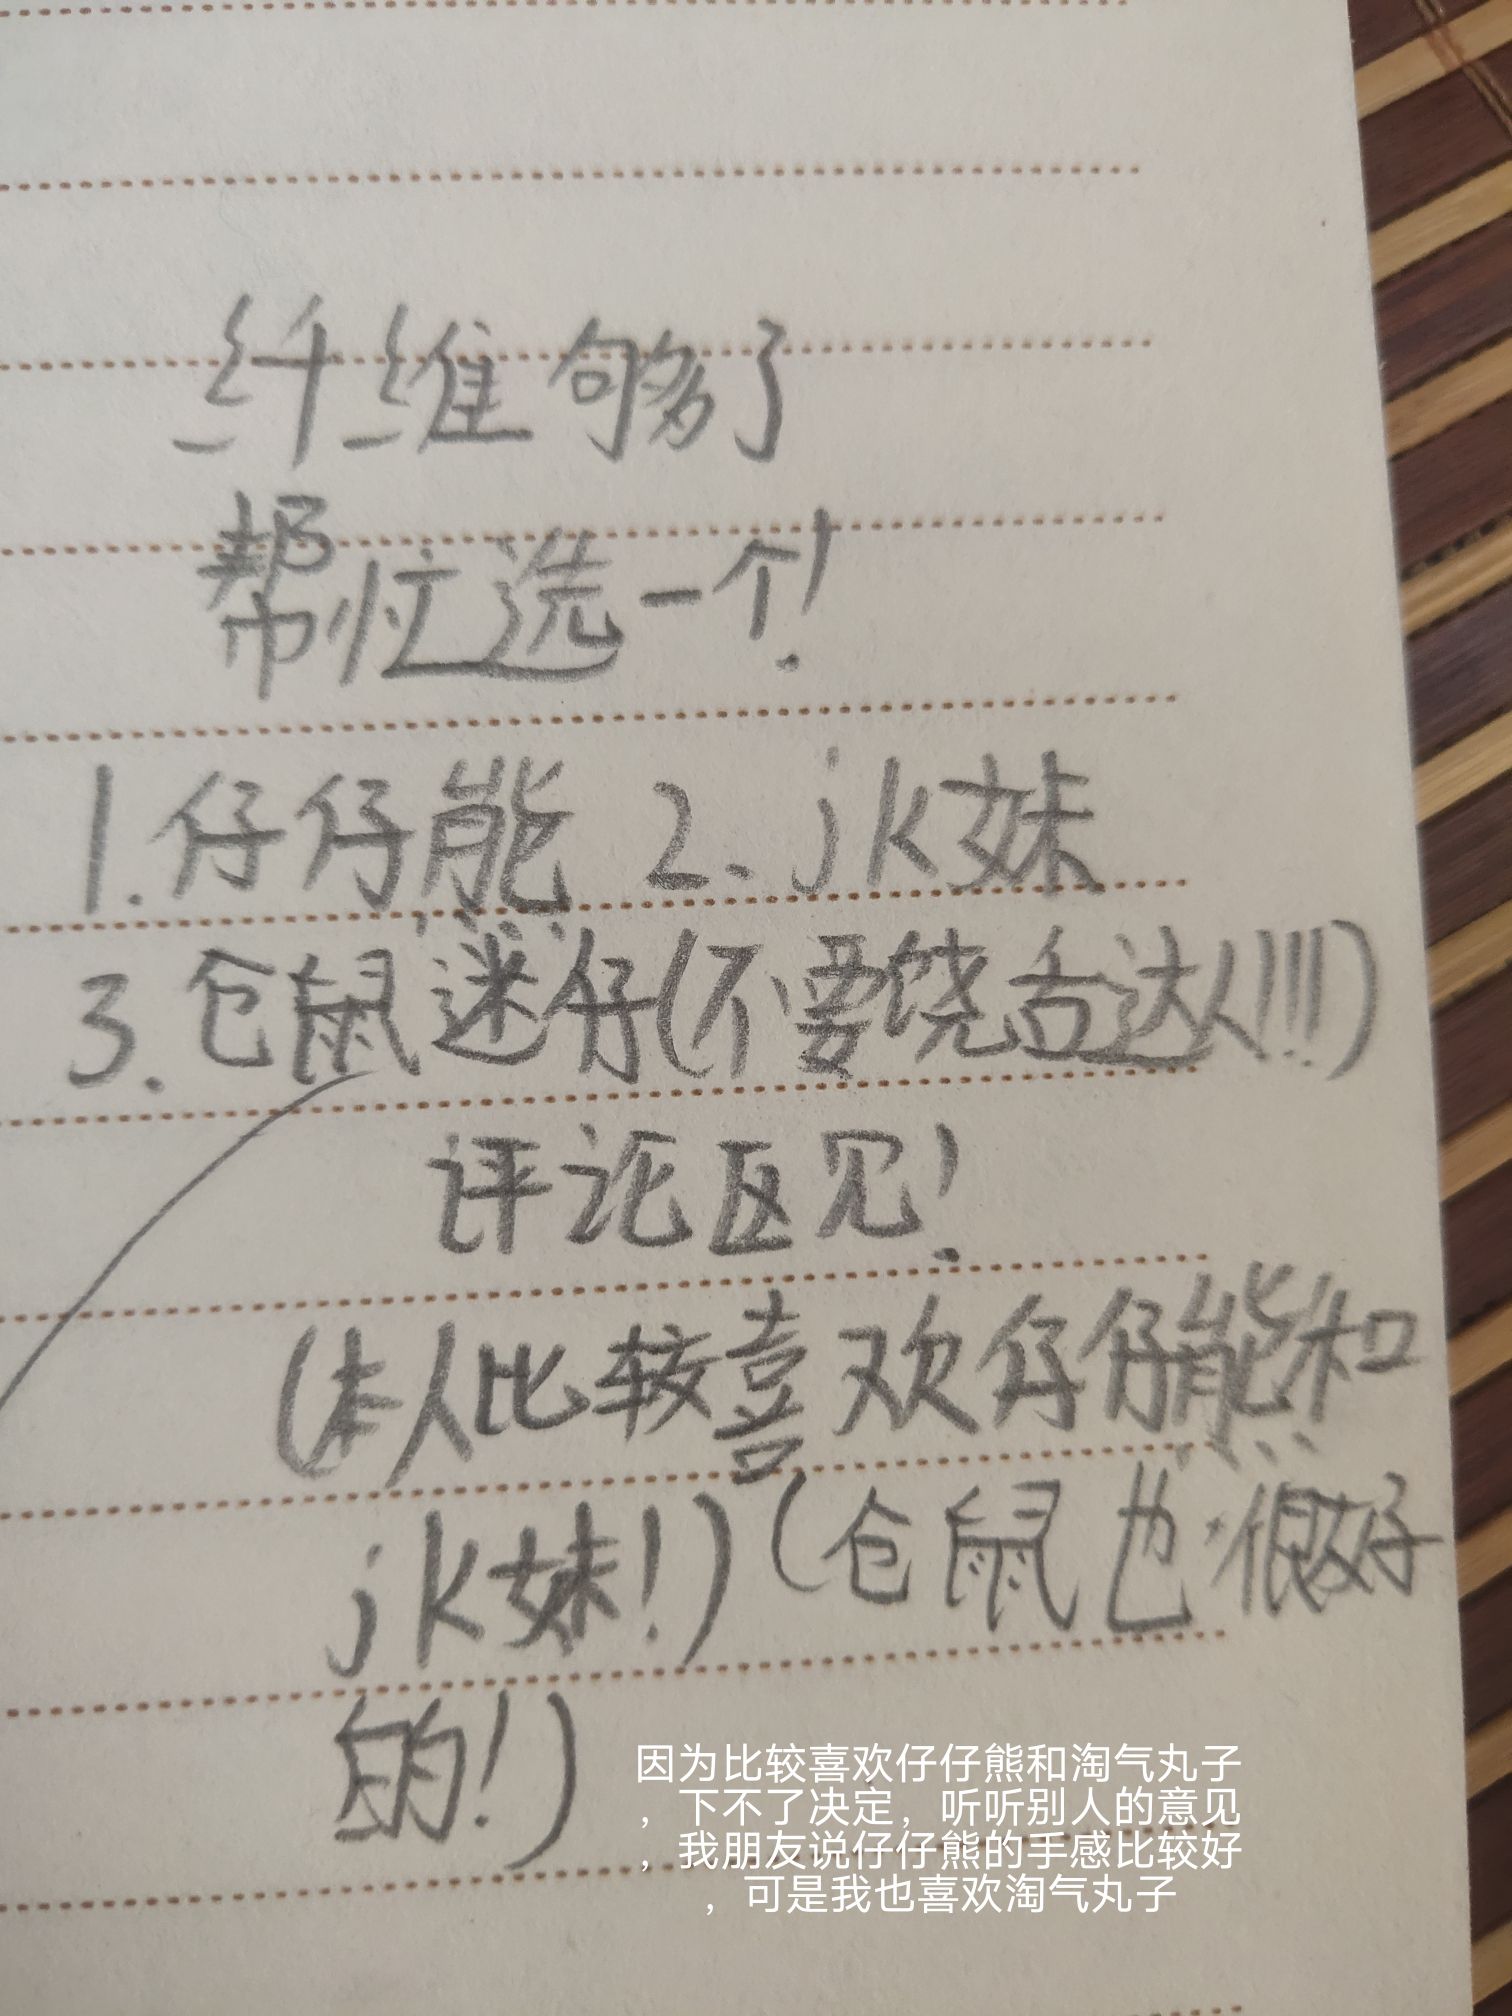 纤维够了
帮忙选一个！
1.仔仔熊 2、jk妹
3.仓鼠迷仔(不要饶舌达人!!!)
评论区见！
(本人比较喜欢仔仔熊和
jk妹!)(仓鼠也很好
的!)
因为比较喜欢仔仔熊和淘气丸子
，下不了决定，听听别人的意见
，我朋友说仔仔熊的手感比较好
，可是我也喜欢淘气丸子